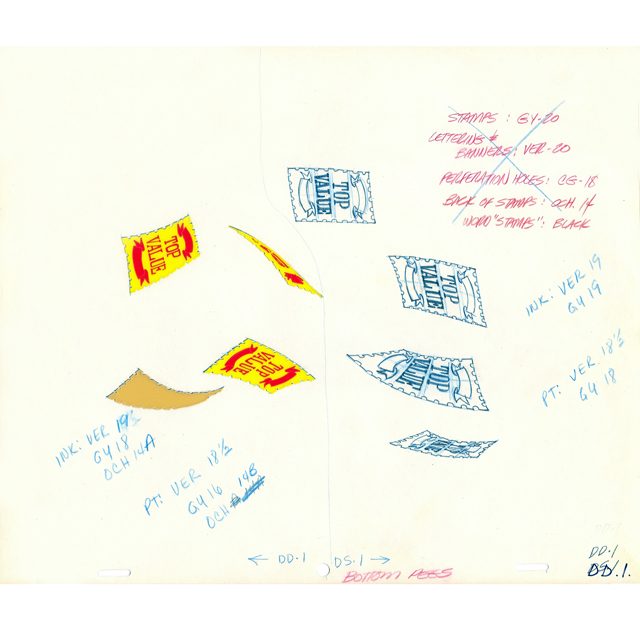 STAMPS : GY-20
LETTERING &
BANNERS: VER-20
PERFERATION HOLES: CG-18
BACK OF STAMPS: OCH. 14
WORD "STAMPS": BLACK
TOP
VALUE
TOP
VALUE
TOP
VALUE
INK: VER 19
GY 19
TOP
VALUE
TOP
VALUE
PT: VER. 18½
GY 18
INK: VER 19½
GY 18
OCH 14A
PT: VER 18½
GY 16
OCH 14B
← DD-1 DS-1 →
BOTTOM PEGS
DD-1
DD.1.